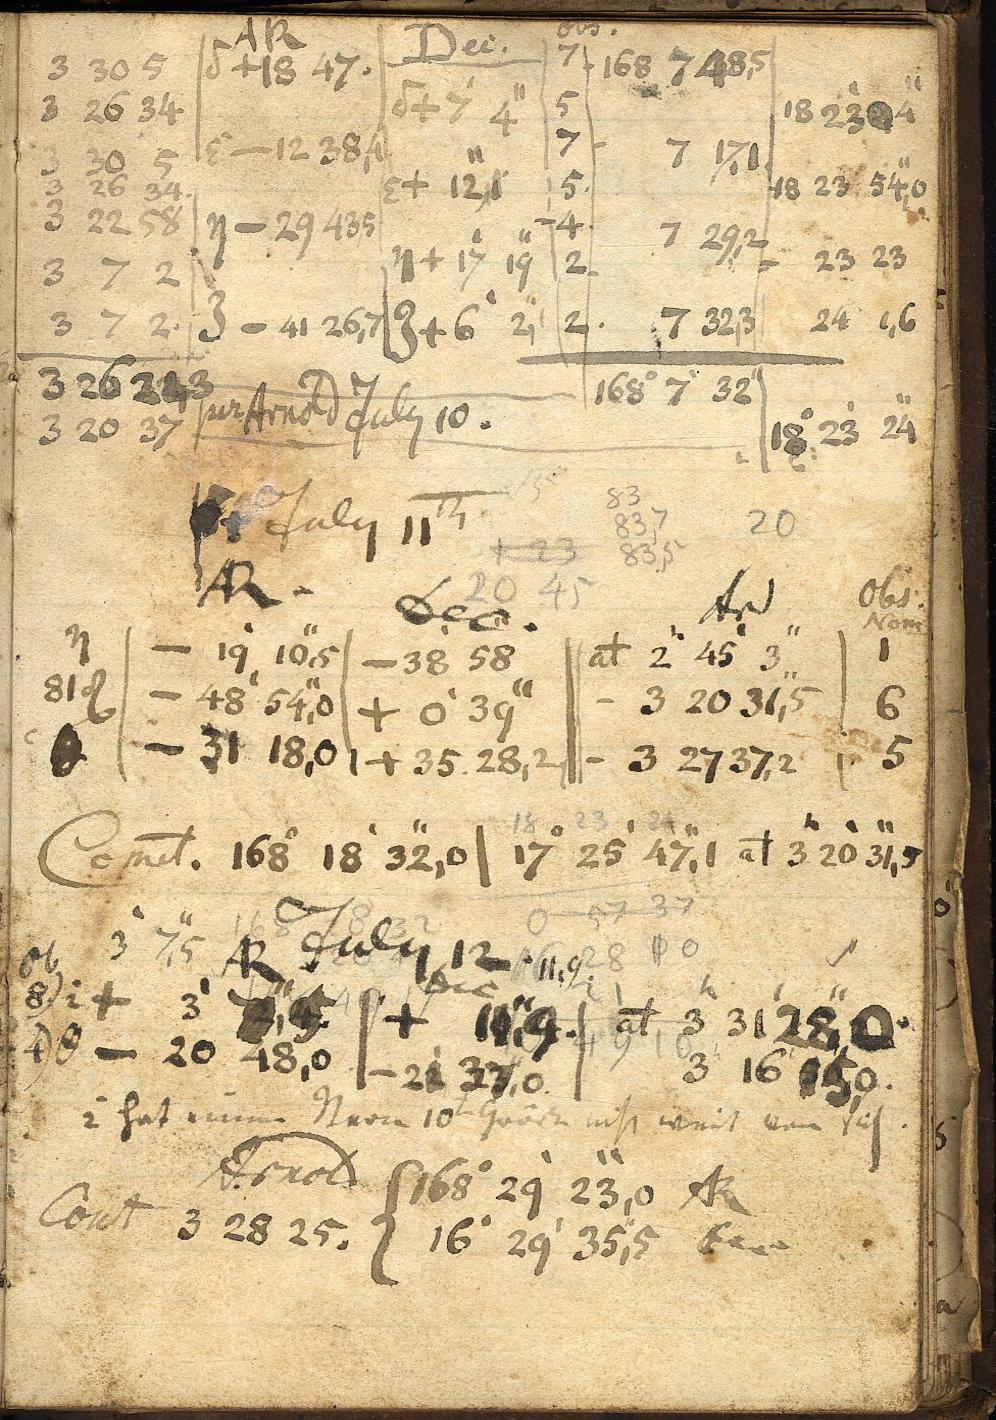 AR Dec. obs.
3 30 5 δ +18 47. 7 168 7 48,5
3 26 34 δ + 7' 4" 5 18 23 4"
3 30 5 ε — 12 38, 7 - 7 17,1
3 26 34. ε + 12,1" 5. 18 23 54,0
3 22 58 η — 29 43 5 4. 7 29,2
3 7 2 η + 17' 19" 2. 23 23
3 7 2. ζ — 41 26,7 ζ + 6' 2," 2. 7 32,3 24 1,6
3 26 168° 7' 32"
3 20 37 per Arnold July 10. 18° 23' 24"
83
July 11th 83,7 20
+ 23 83,5
20 45
AR - Dec. Ar Obs. Nom
η — 19' 10",5 — 38' 58" at 2h 45' 3" 1
81 — 48' 54",0 + 0' 39" - 3 20 31,5 6
— 31 18,0 + 35. 28,2 - 3 27 37,2 5
18 23 24
Comet. 168° 18' 32",0 | 17° 25' 47",1 at 3h 20' 31",5
168 18 32 0 57 37
Ob 3' 7",5 AR July 12 16 28 0
Dec 11,9
8) i + 3' + 11",9. at 3h 31' 28",0.
4) θ — 20 48,0 — 21 37,0. 3 16 15,0.
i hat einen Stern 10t Größe nicht weit von sich.
Arnold 168° 29' 23",0 AR
Comt 3 28 25. 16° 29' 35",5 Dec